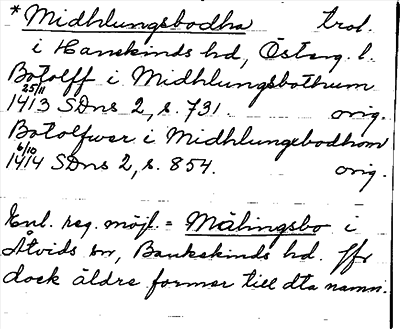 *Midhlungsbodha trol.
i Hanekinds hd, Österg. l.
Botolff i Midhlungsbothum
25/11 1413 SDns 2, s. 731. orig.
Botolfwer i Midhlungxbodhom
6/10 1414 SDns 2, s. 854. orig.
Enl. reg. möjl. = Målingsbo i
Åtvids sn, Bankekinds hd. Jfr
dock äldre former till dta namn.